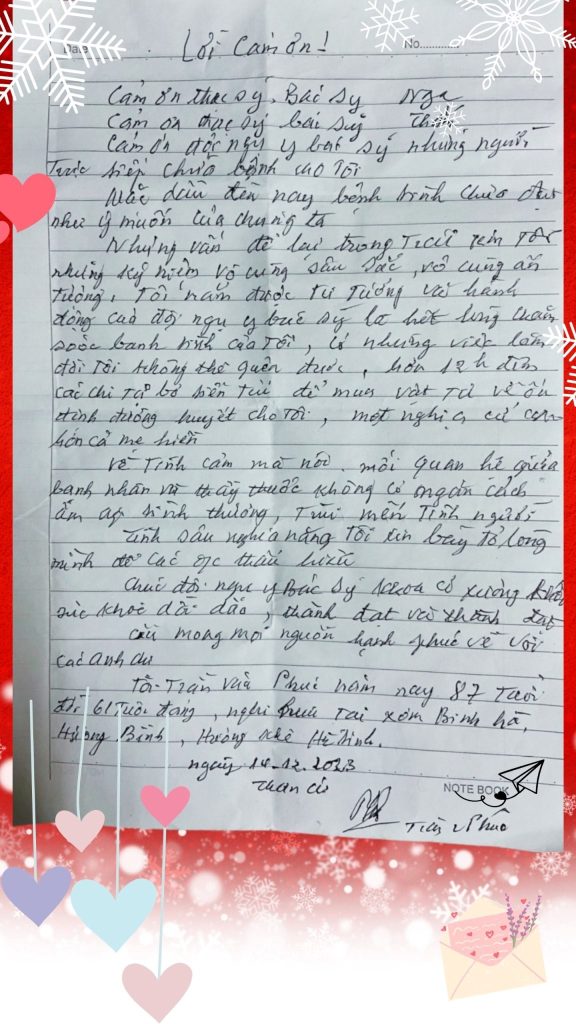 Date No.............
Lời Cảm ơn!
Cảm ơn thạc sỹ, Bác sỹ Nga
Cảm ơn thạc sỹ bác sỹ
Cảm ơn đội ngũ y bác sỹ những người
Trực tiếp chữa bệnh cho Tôi
Mặc dầu đến nay bệnh tình chưa được
như ý muốn của chúng ta
Nhưng vấn đề lại trong Tôi
những kỷ niệm vô cùng sâu sắc, vô cùng ấn
Tượng, Tôi nắm được Tư Tưởng và hành
động của đội ngũ y bác sỹ là hết lòng chăm
soóc bệnh tình của Tôi, có những việc làm
đời Tôi không thể quên được, hơn 12h đêm
các chị Tự bỏ tiền Túi để mua vật Tư về ổn
định đường huyết cho Tôi, một nghĩa cử cao
hơn cả mẹ hiền
Về Tình cảm mà nói, mối quan hệ giữa
bệnh nhân và thầy thuốc không có ngăn cách
ấm áp tình thương, Trìu mến Tình người
Tình sâu nghĩa nặng Tôi xin bày tỏ lòng
mình để các thấu hiểu
Chúc đội ngũ y Bác sỹ khoa cơ xương
sức khoẻ dồi dào, thành đạt và thành đạt
cầu mong mọi nguồn hạnh phúc về với
các anh
Tôi Trần Phúc năm nay 87 Tuổi
đời 61 Tuổi đảng, nghỉ hưu Tại xóm Bình hà,
Hương Bình, Hương Khê Hà Tĩnh.
ngày 14.12.2023
Thân
NOTE BOOK
Trần Phúc